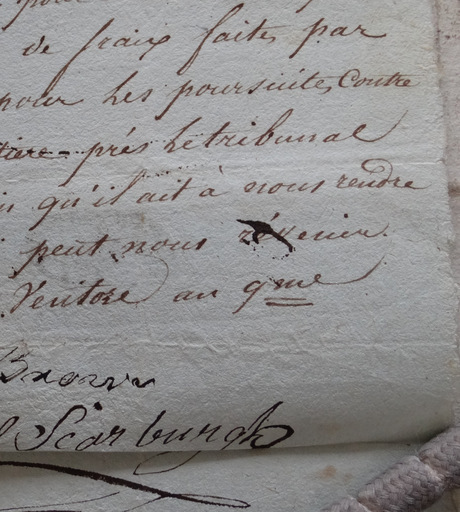 pour
de fraix faites par
pour les poursuites contre
près le tribunal
qu'il ait à nous rendre
peut nous revenir.
Ventose an 9me
Brown
Scarburgh